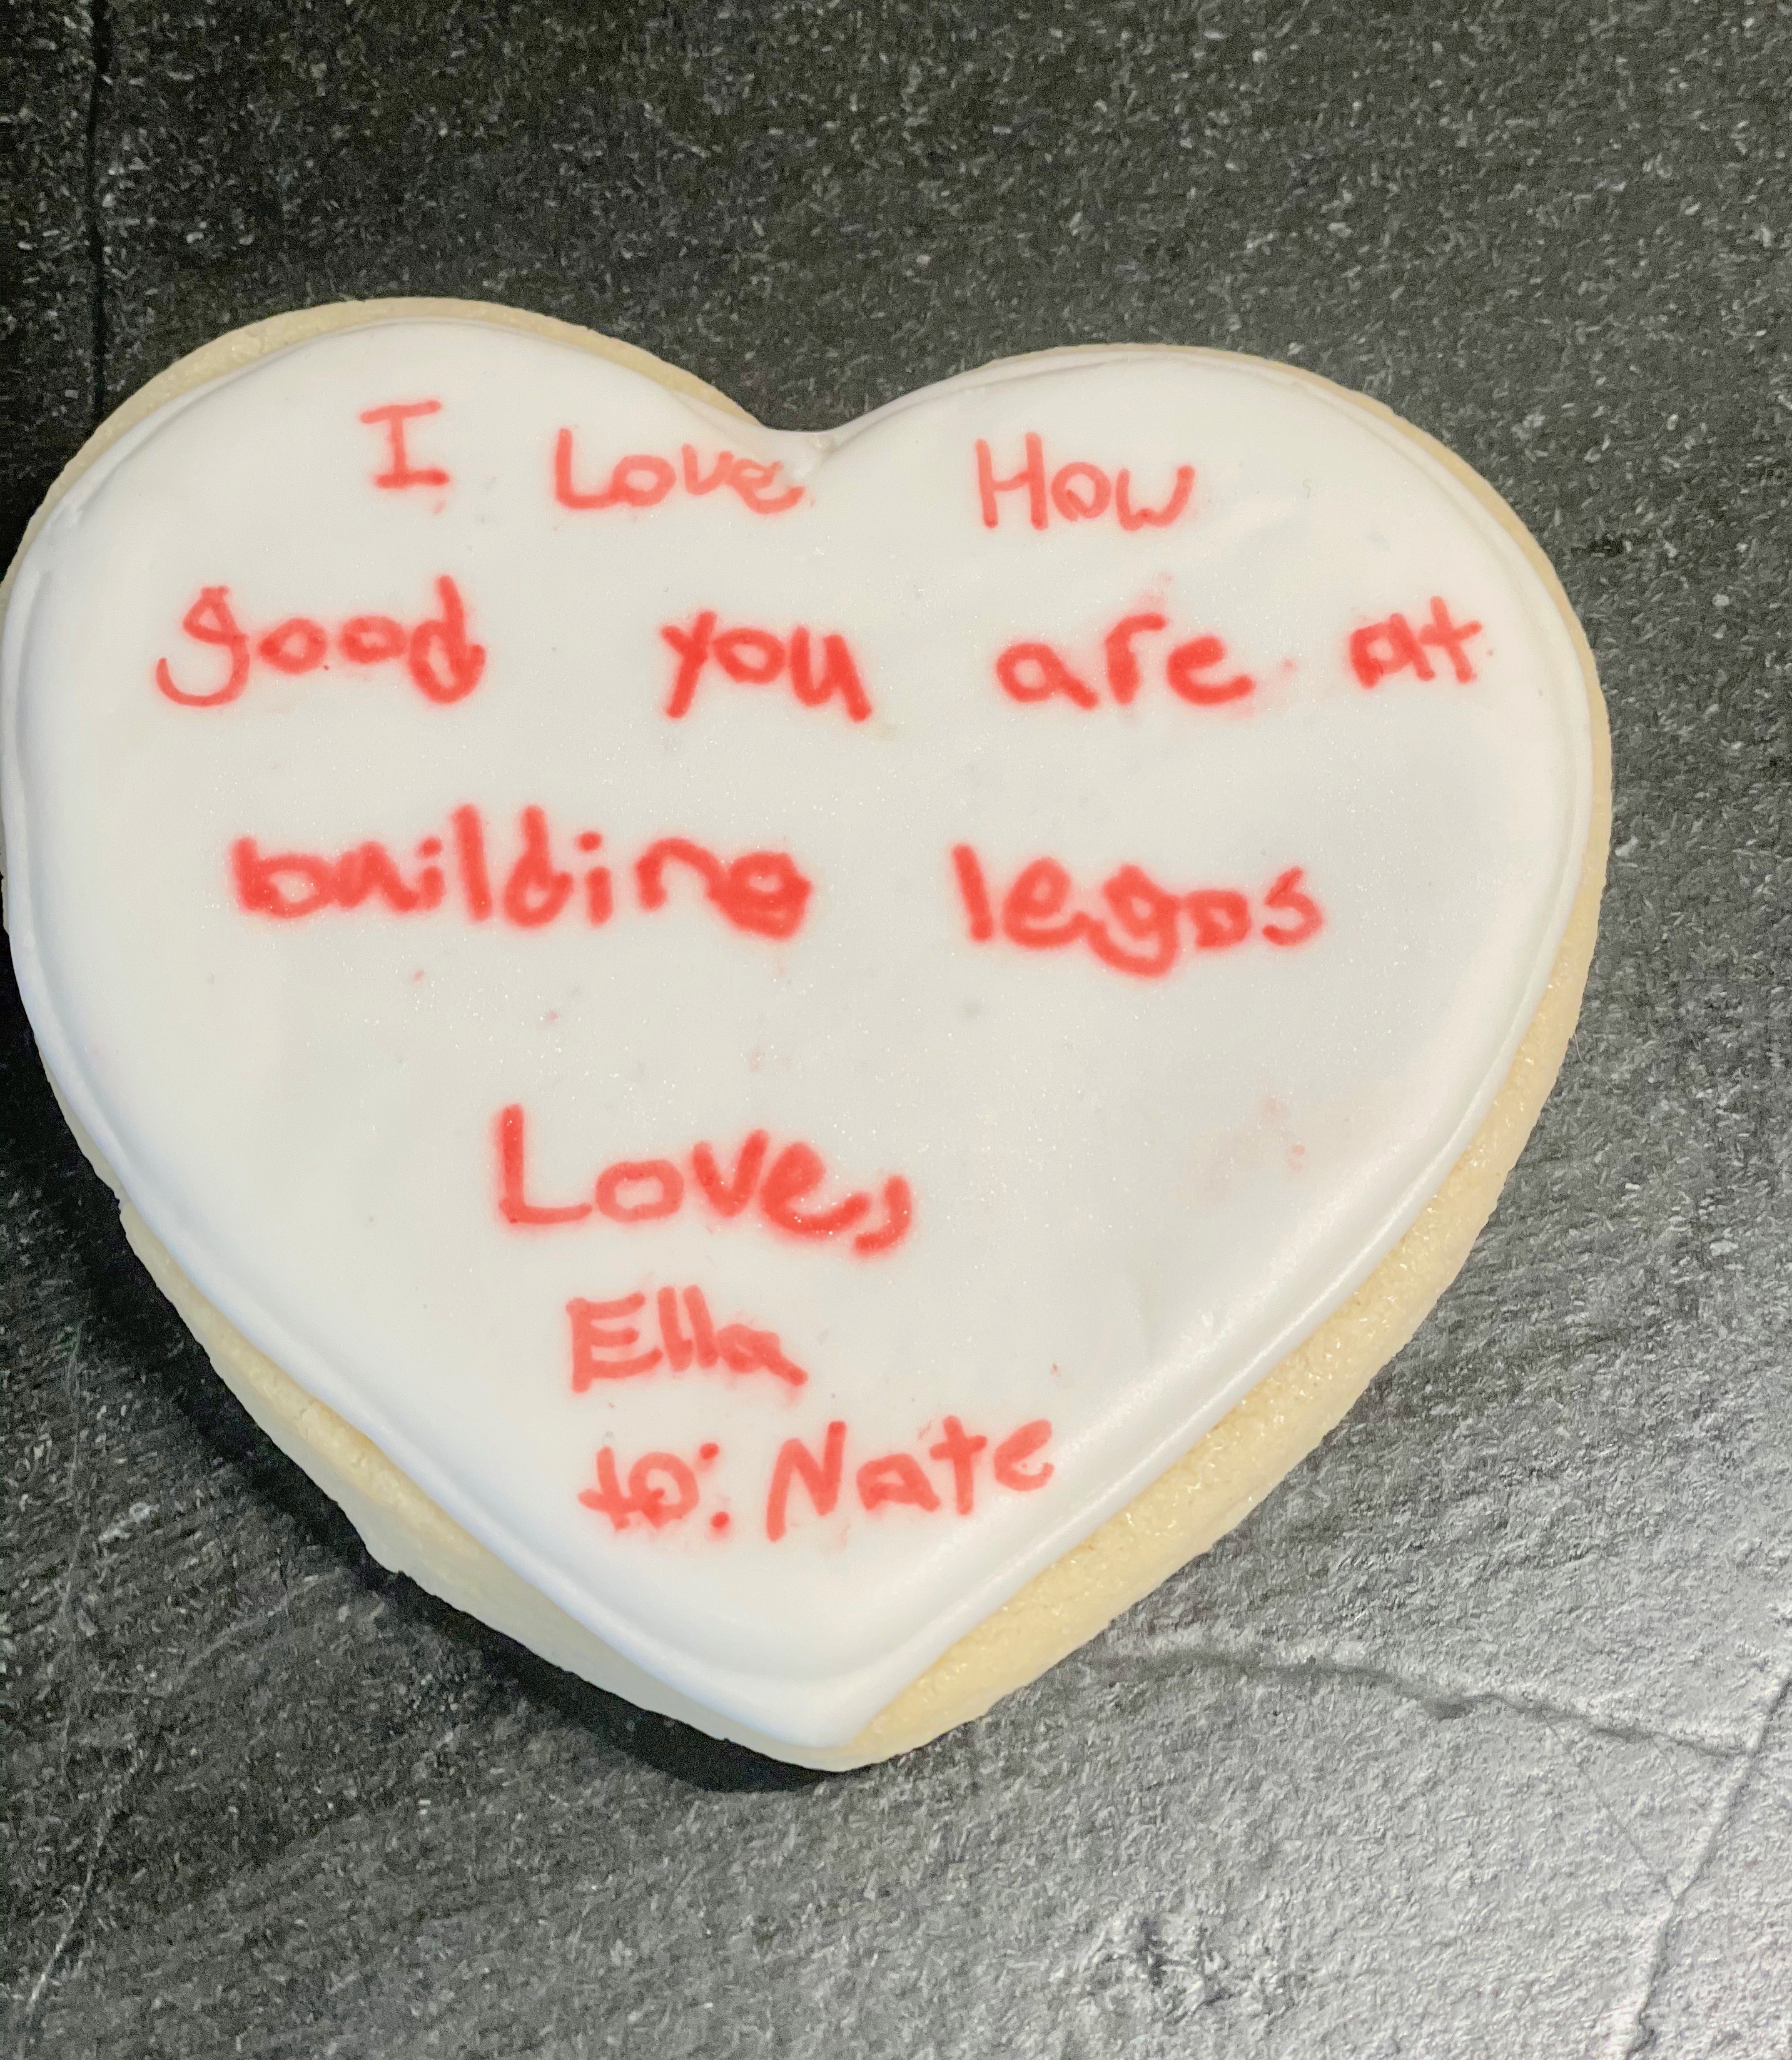 I Love How
good you are at
building legos
Love,
Ella
to: Nate